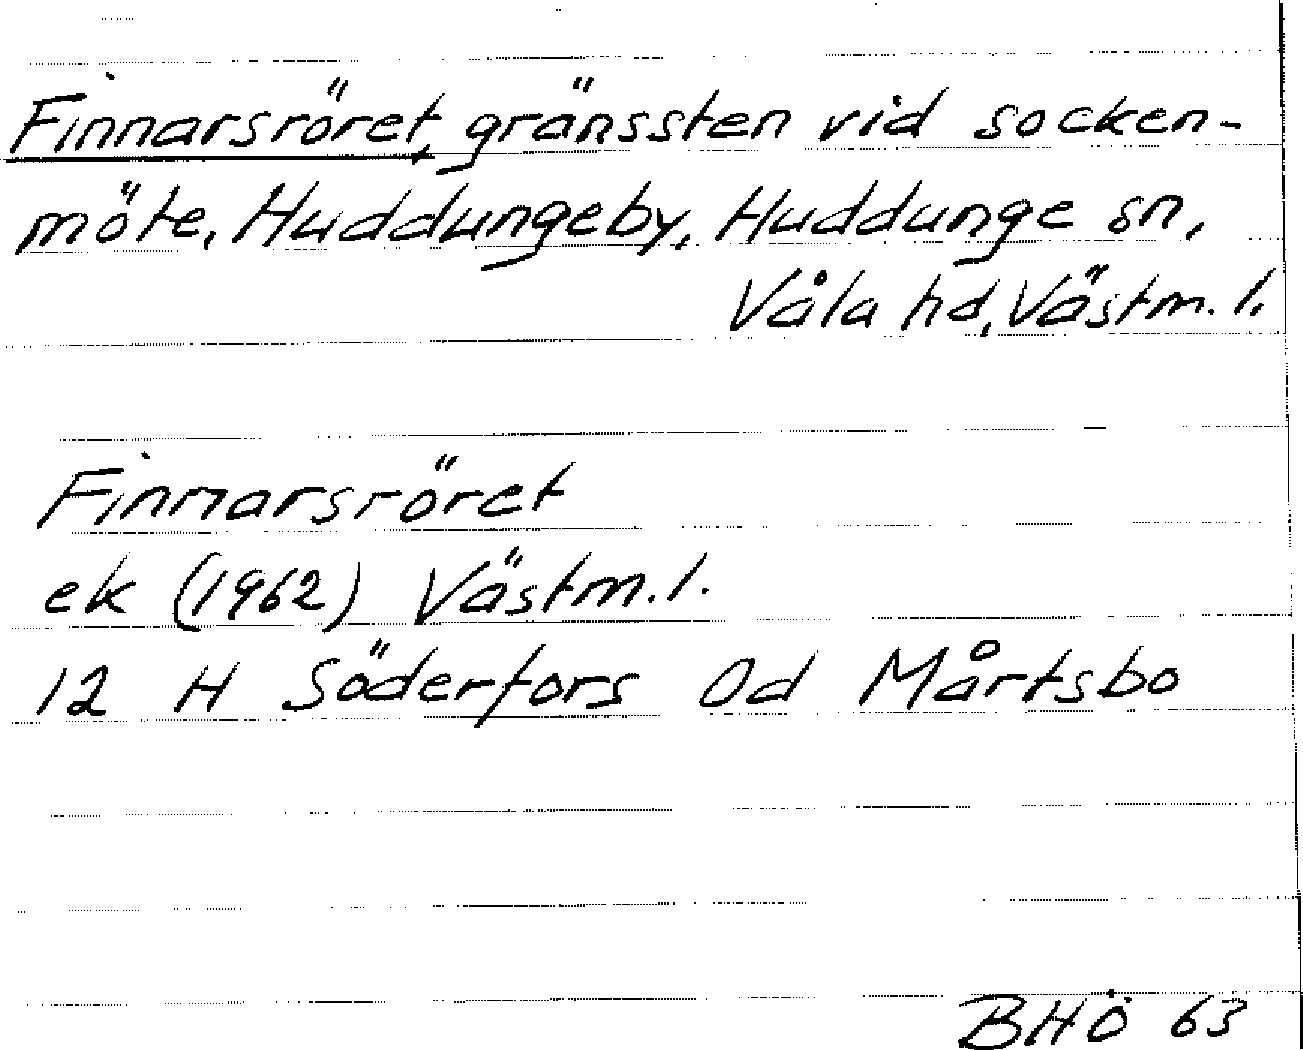 Finnarsröret, gränssten vid socken-
möte, Huddungeby, Huddunge sn,
Våla hd, Västm. l.
Finnarsröret
ek (1962) Västm. l.
12 H Söderfors 0d Mårtsbo
BHÖ 63